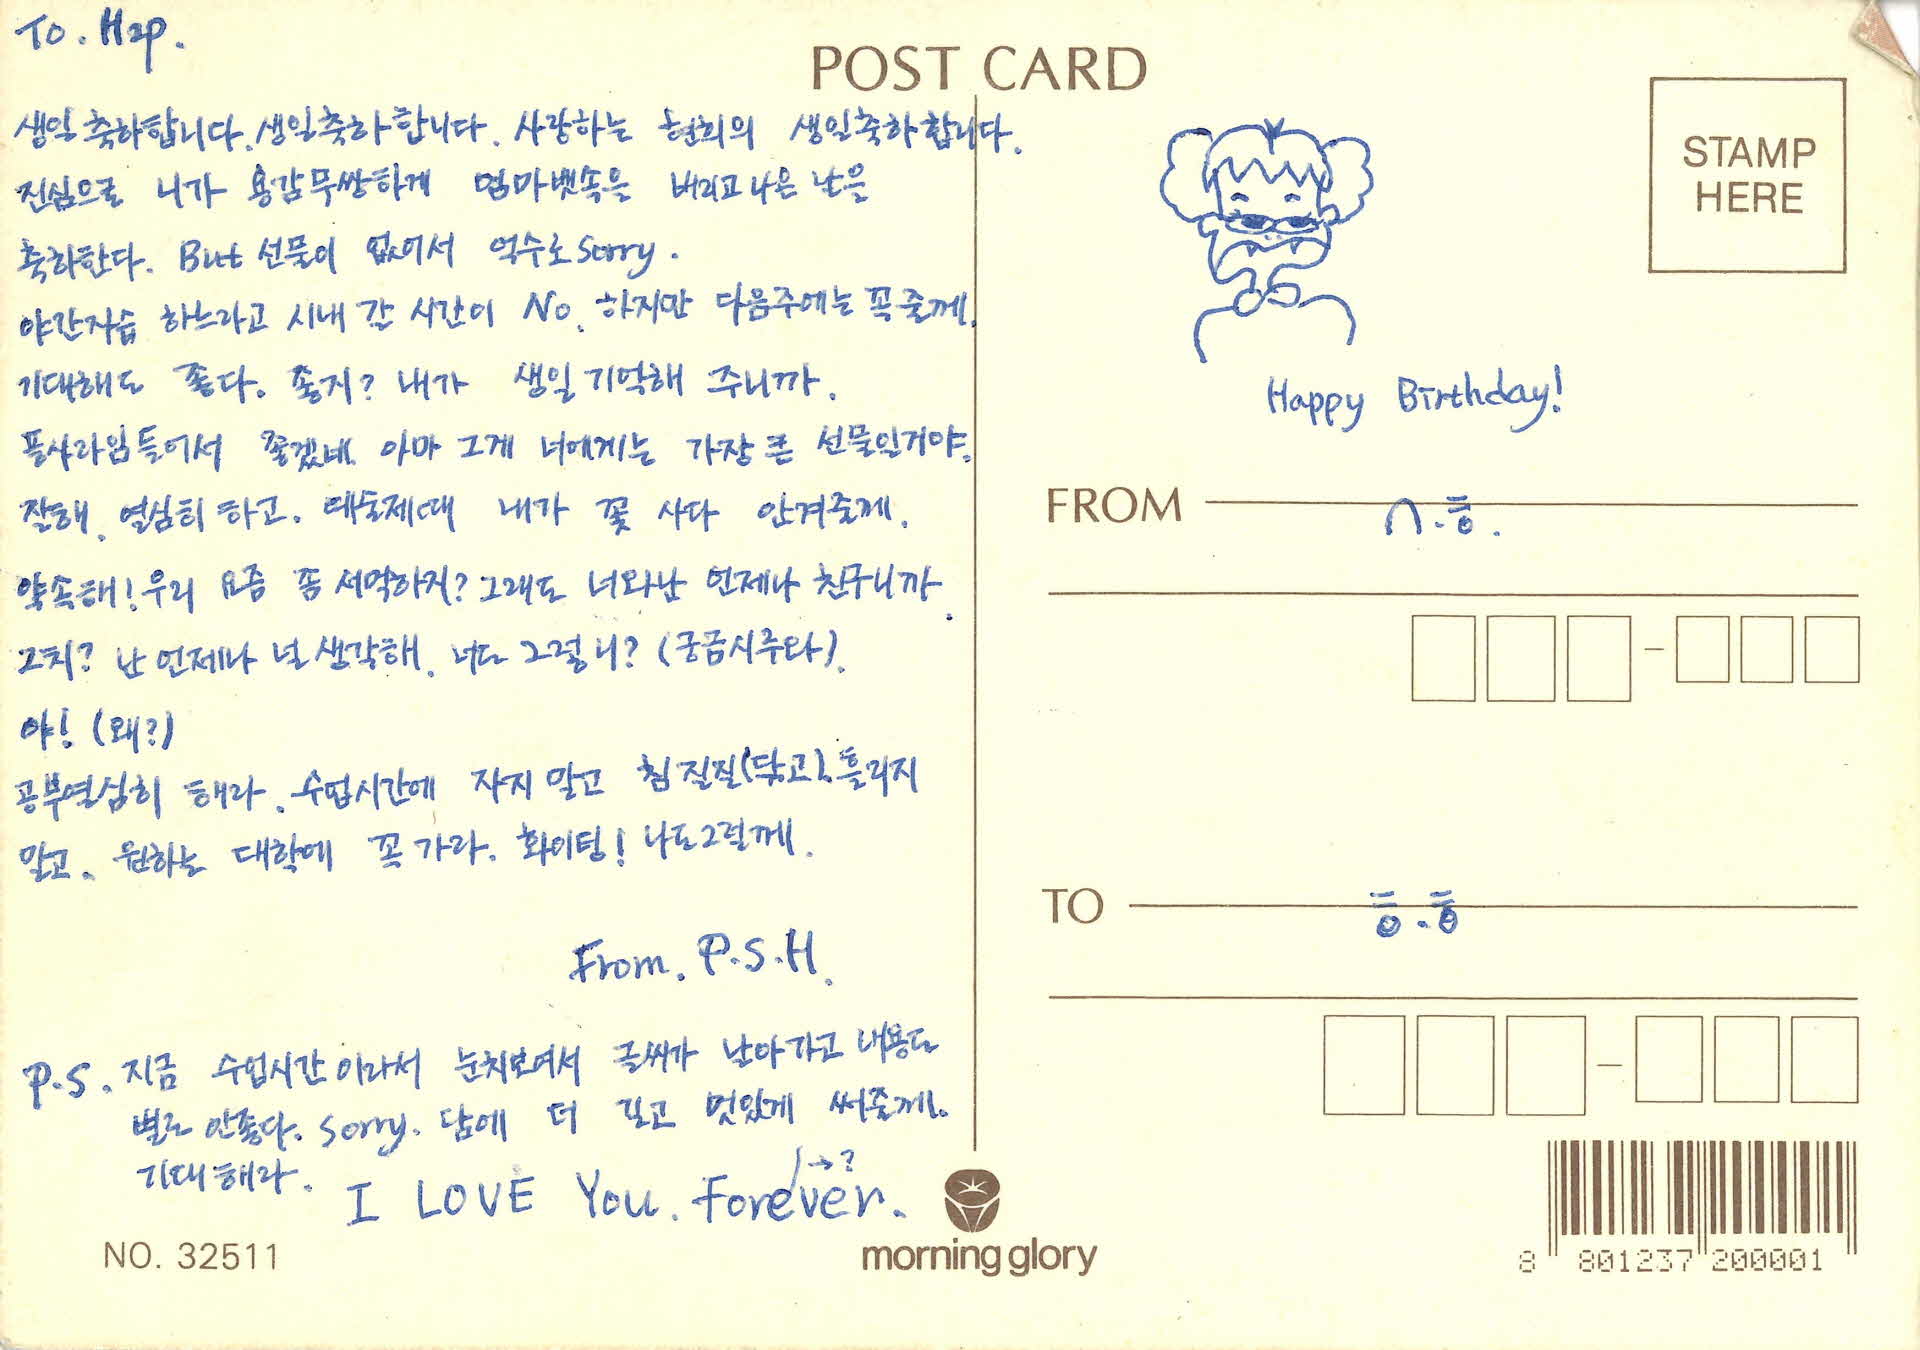 To. Hap.
생일축하합니다. 생일축하합니다. 사랑하는 현희의 생일축하합니다.
진심으로 니가 용감무쌍하게 엄마뱃속을 버리고 나온 날을
축하한다. But 선물이 없어서 억수로 sorry.
야간자습 하느라고 시내 갈 시간이 No. 하지만 다음주에는 꼭 줄께.
기대해도 좋다. 좋지? 내가 생일 기억해 주니까.
플사라임 들어서 좋겠네. 아마 그게 너에게는 가장 큰 선물일거야.
잘해. 열심히 하고. 예술제때 내가 꽃 사다 안겨줄께.
약속해! 우리 요즘 좀 서먹하지? 그래도 너와난 언제나 친구니까.
그치? 난 언제나 널 생각해. 너도 그렇니? (궁금시루와).
야! (왜?)
공부열심히 해라. 수업시간에 자지 말고 침 질질(닦고). 흘리지
말고. 원하는 대학에 꼭 가라. 화이팅! 나도그럴께.
From. P.S.H.
P.S. 지금 수업시간이라서 눈치보여서 글씨가 날아가고 내용도
별로 안좋다. sorry. 담에 더 길고 멋있게 써줄께.
기대해라.
I LOVE You. Forever.
→?
NO. 32511
POST CARD
STAMP
HERE
Happy Birthday!
FROM
ㅅ.ㅎ.
TO
ㅎ.ㅎ
morning glory
8 801237 200001